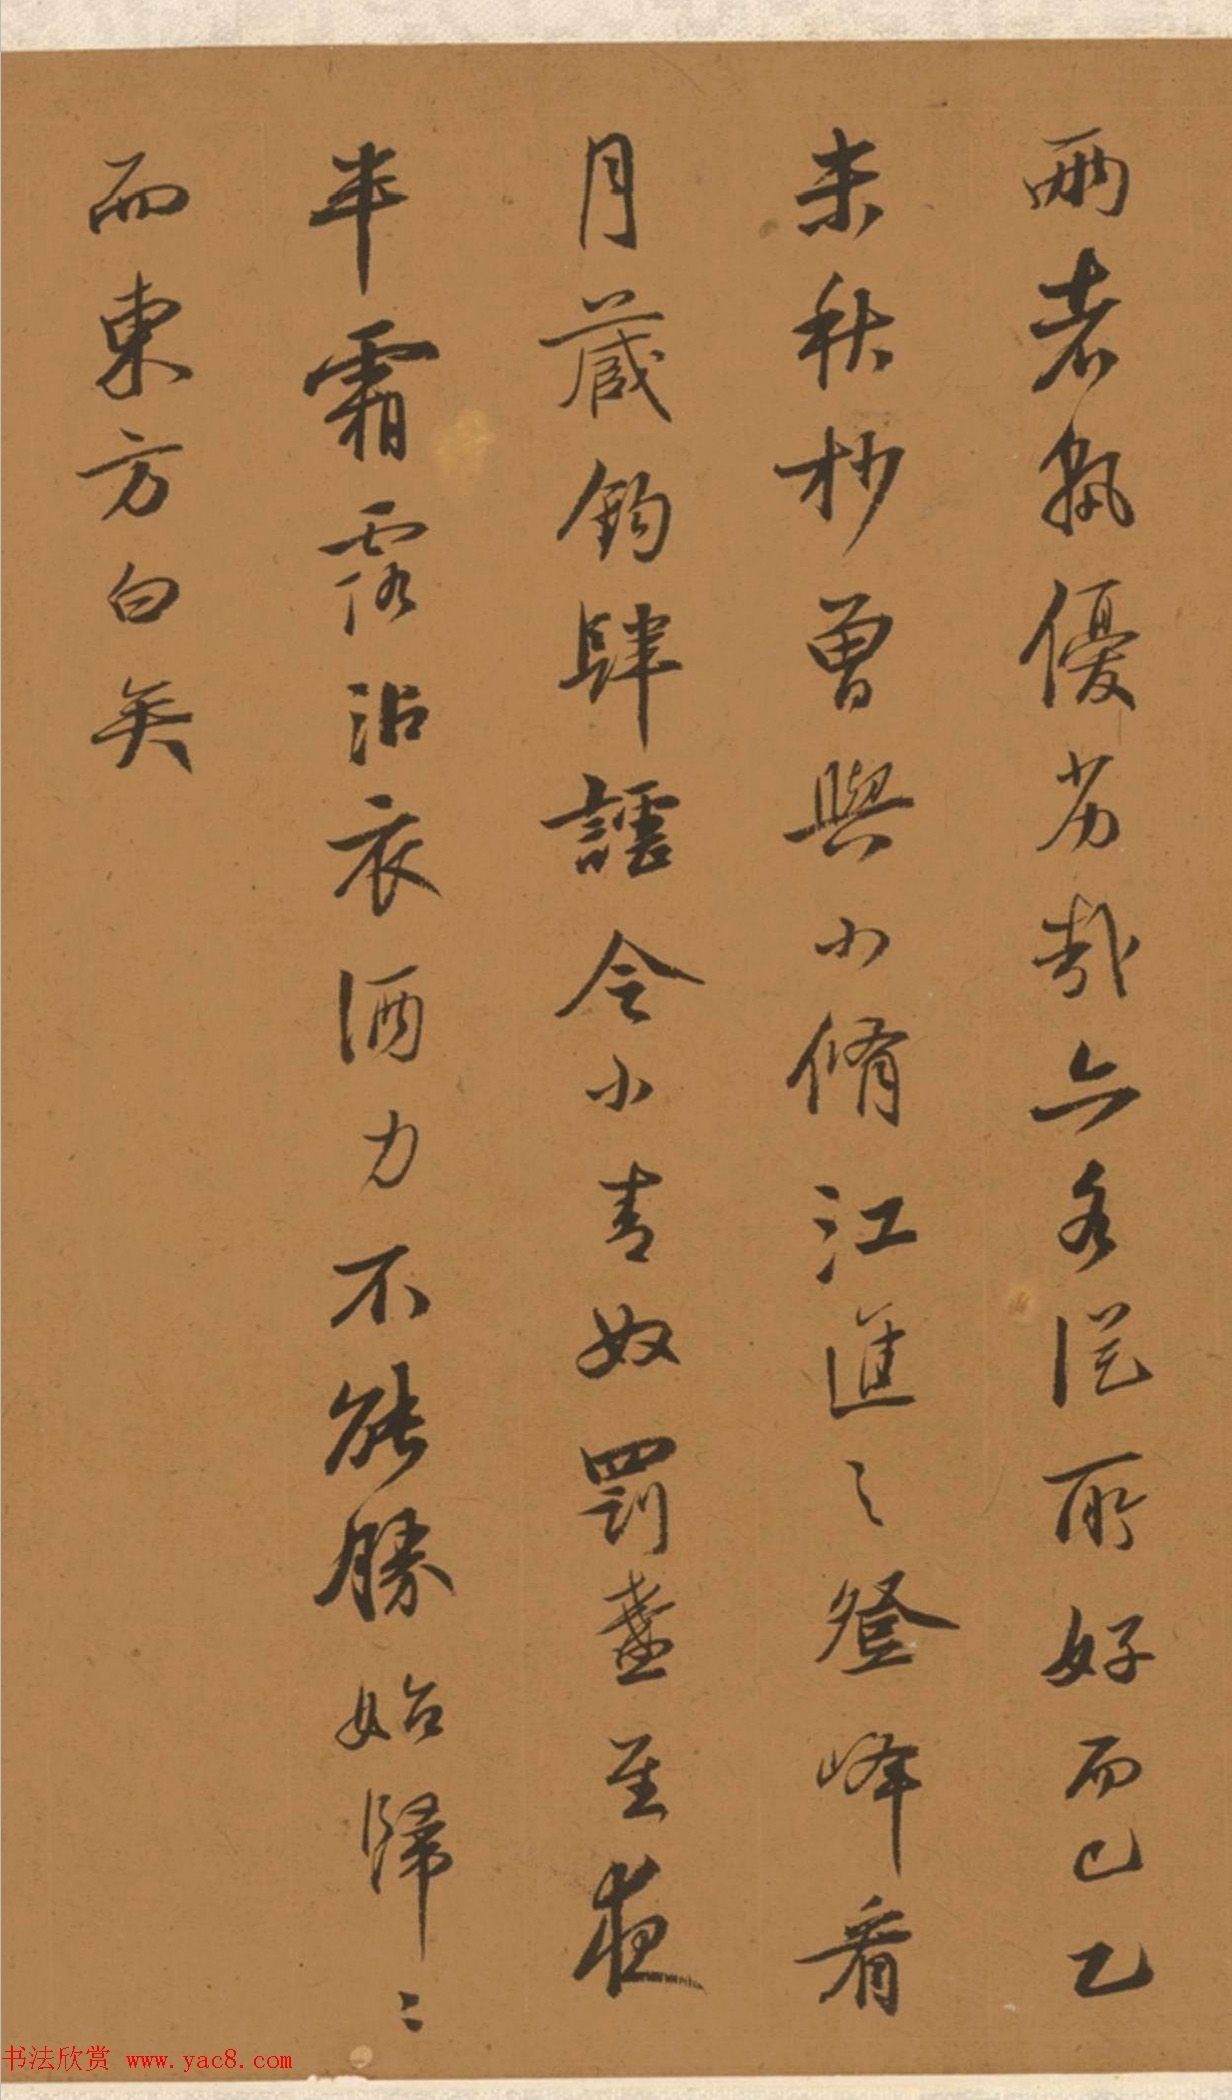 兩者孰優劣哉亦各從所好而已乙
未秋杪曾與小脩江進之登峰看
月藏鉤肆謔令小青奴罰盞至夜
半霜露沾衣酒力不能勝始歸歸
而東方白矣
书法欣赏 www.yac8.com